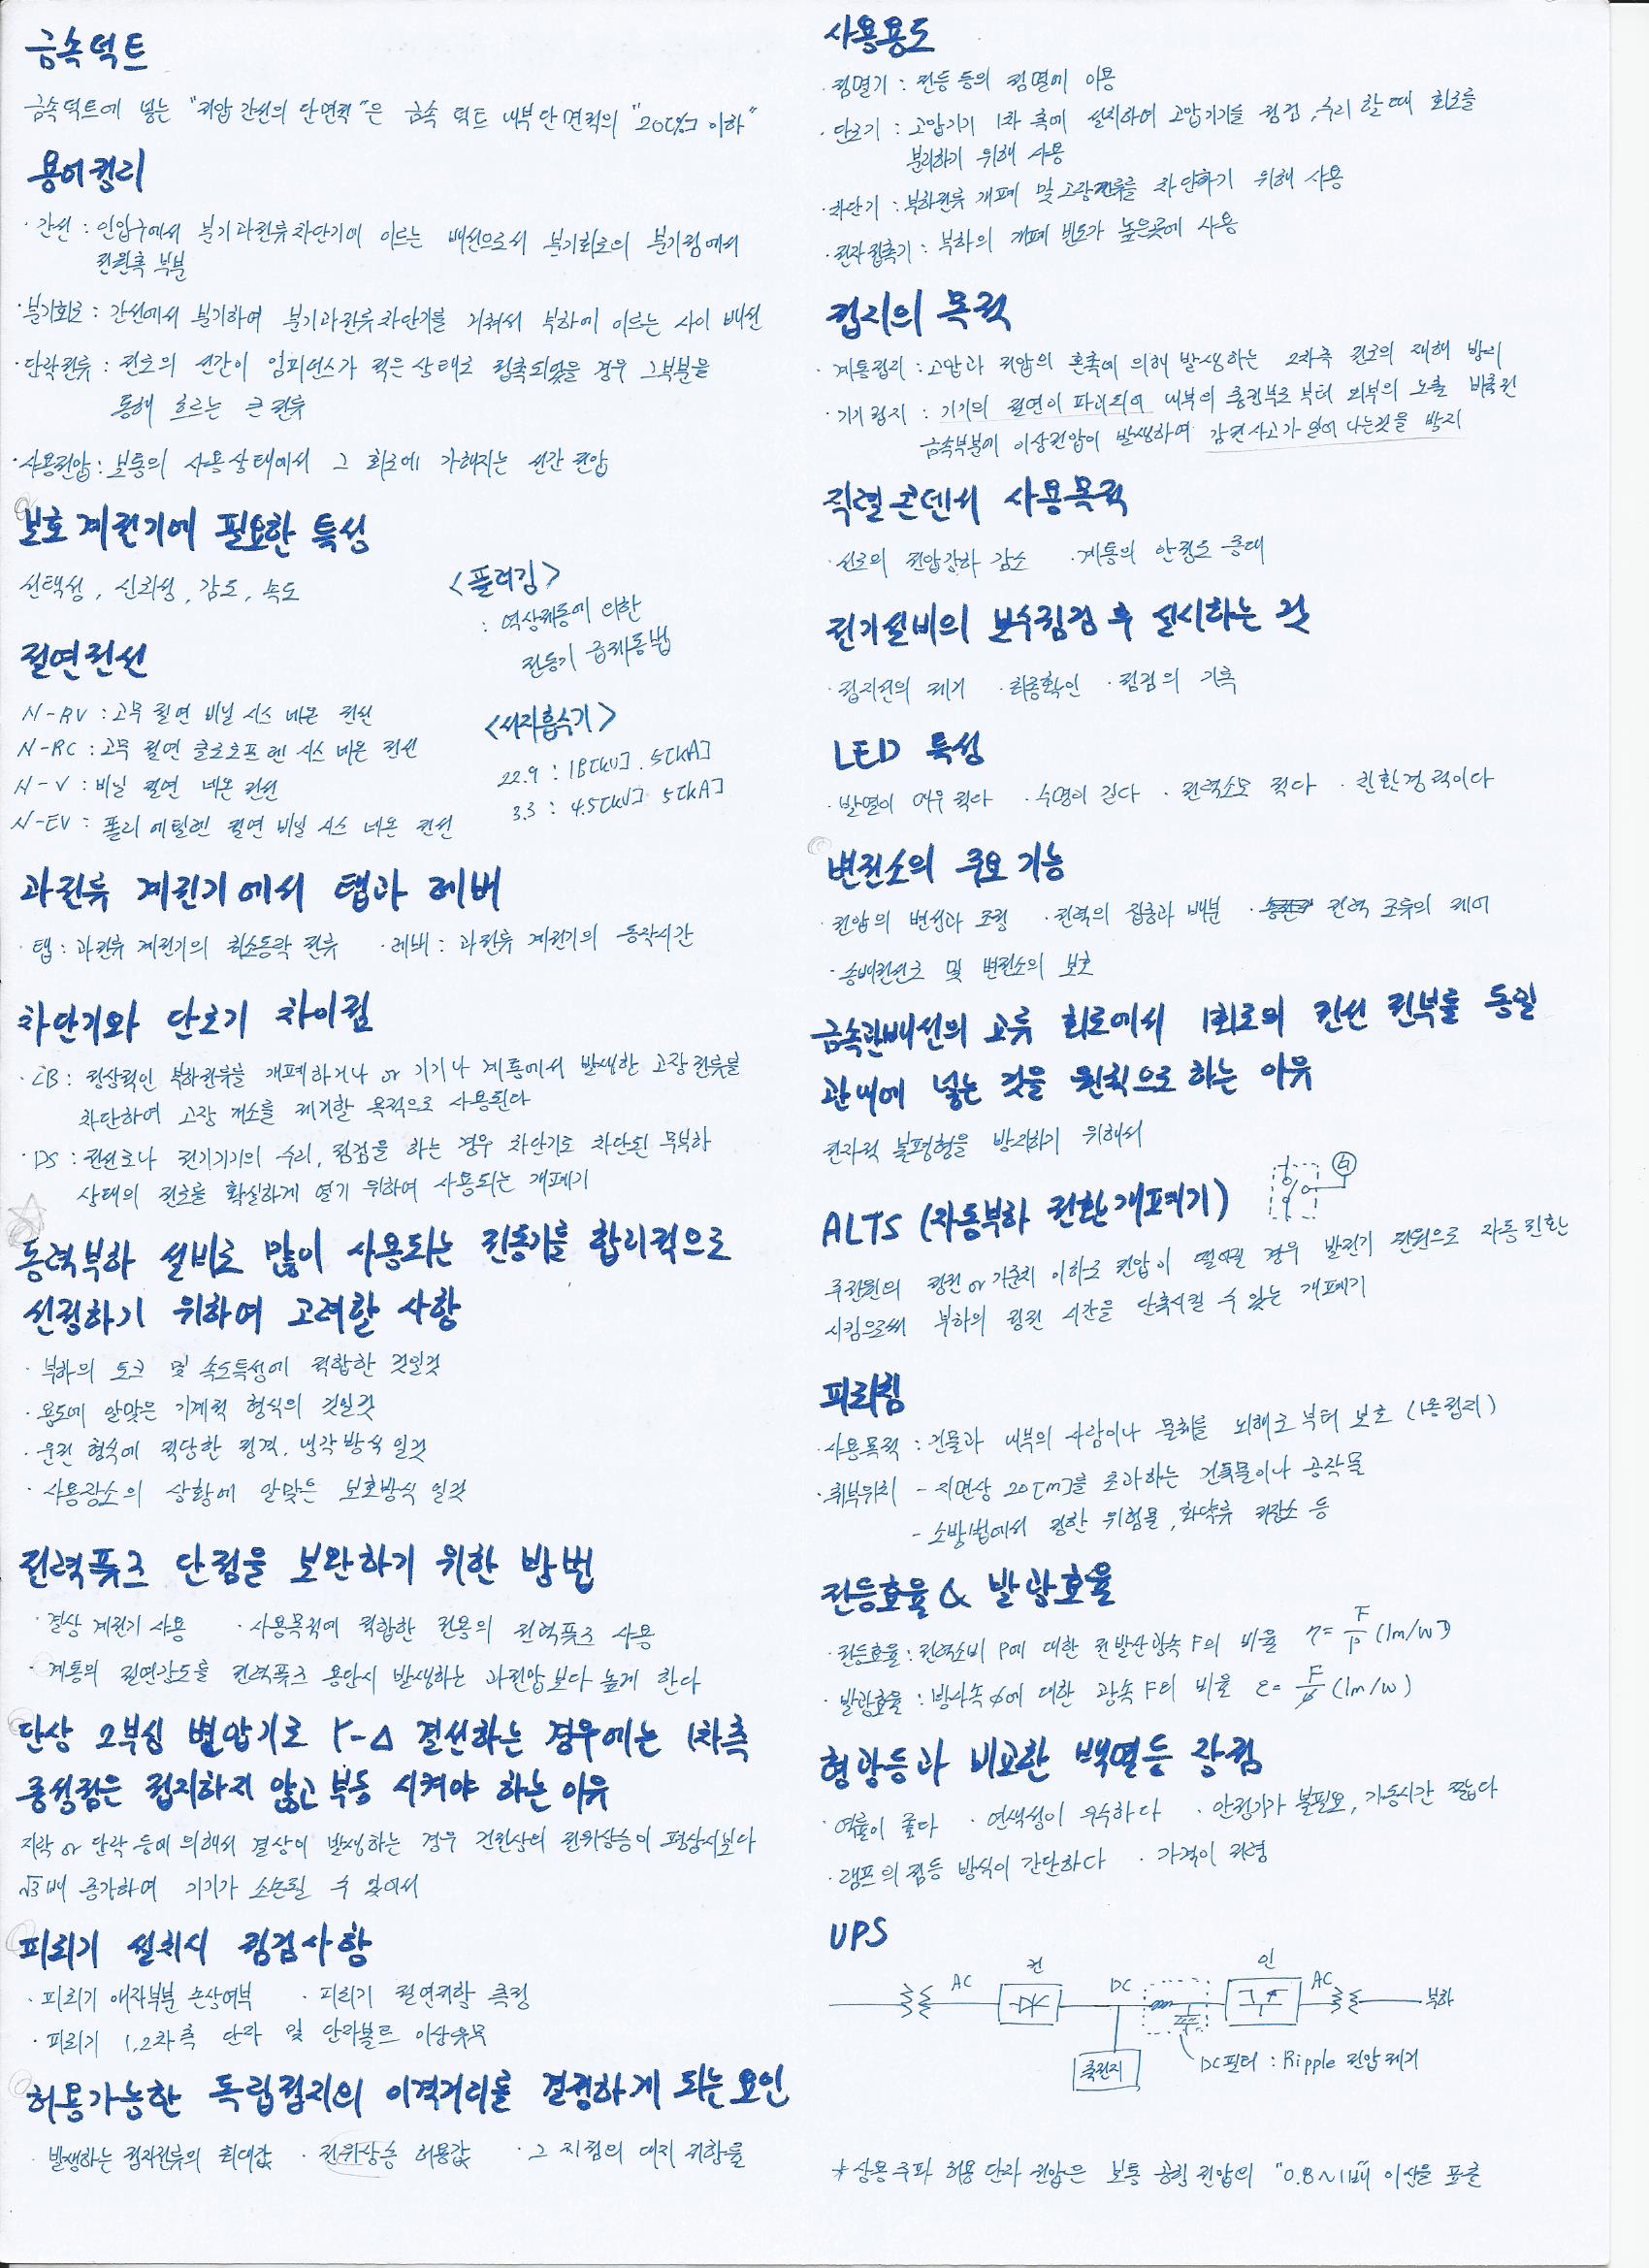 금속덕트
금속덕트에 넣는 "저압간선의 단면적"은 금속 덕트 내부단면적의 "20[%] 이하"
용어정리
· 간선 : 인입구에서 분기과전류차단기에 이르는 배선으로서 분기회로의 분기점에서
전원측 부분
· 분기회로 : 간선에서 분기하여 분기과전류차단기를 거쳐서 부하에 이르는 사이 배선
· 단락전류 : 전로의 선간이 임피던스가 적은 상태로 접촉되었을 경우 그부분을
통해 흐르는 큰 전류
· 사용전압 : 보통의 사용상태에서 그 회로에 가해지는 선간 전압
보호 계전기에 필요한 특성
선택성, 신뢰성, 감도, 속도
절연전선
N-RV : 고무 절연 비닐 시스 네온 전선
N-RC : 고무 절연 클로로프렌 시스 네온 전선
N-V : 비닐 절연 네온 전선
N-EV : 폴리 에틸렌 절연 비닐 시스 네온 전선
<플러깅>
: 역상제동에 의한
전동기 급제동법
<서지흡수기>
22.9 : 18[kV]. 5[kA]
3.3 : 4.5[kV] 5[kA]
과전류 계전기에서 탭과 레버
· 탭 : 과전류 계전기의 최소동작 전류 · 레버 : 과전류 계전기의 동작시간
차단기와 단로기 차이점
· CB : 정상적인 부하전류를 개폐하거나 or 기기나 계통에서 발생한 고장전류를
차단하여 고장 개소를 제거할 목적으로 사용된다
· DS : 전선로나 전기기기의 수리, 점검을 하는 경우 차단기로 차단된 무부하
상태의 전로를 확실하게 열기 위하여 사용되는 개폐기
동력부하 설비로 많이 사용되는 전동기를 합리적으로
선정하기 위하여 고려할 사항
· 부하의 토크 및 속도특성에 적합한 것일것
· 용도에 알맞은 기계적 형식의 것일것
· 운전 형식에 적당한 정격. 냉각방식 일것
· 사용장소의 상황에 알맞은 보호방식 일것
전력퓨즈 단점을 보완하기 위한 방법
· 결상 계전기 사용 · 사용목적에 적합한 전용의 전력퓨즈 사용
· 계통의 절연강도를 전력퓨즈 용단시 발생하는 과전압보다 높게 한다
단상 2부싱 변압기로 Y-Δ 결선하는 경우에는 1차측
중성점은 접지하지 않고 부동 시켜야 하는 이유
지락 or 단락 등에 의해서 결상이 발생하는 경우 건전상의 전위상승이 평상시보다
√3배 증가하여 기기가 소손될 수 있어서
피뢰기 설치시 점검사항
· 피뢰기 애자부분 손상여부 · 피뢰기 절연저항 측정
· 피뢰기 1,2차측 단자 및 단자볼트 이상유무
허용가능한 독립접지의 이격거리를 결정하게 되는 요인
· 발생하는 접지전류의 최대값 · 전위상승 허용값 · 그 지점의 대지 저항률
사용용도
· 점멸기 : 전등 등의 점멸에 이용
· 단로기 : 고압기기 1차 측에 설치하여 고압기기를 점검, 수리 할때 회로를
분리하기 위해 사용
· 차단기 : 부하전류 개폐 및 고장전류를 차단하기 위해 사용
· 전자접촉기 : 부하의 개폐 빈도가 높은곳에 사용
접지의 목적
· 계통접지 : 고압과 저압의 혼촉에 의해 발생하는 2차측 전로의 재해 방지
· 기기접지 : 기기의 절연이 파괴되어 내부의 충전부로 부터 외부의 노출 비충전
금속부분에 이상전압이 발생하여 감전사고가 일어 나는것을 방지
직렬콘덴서 사용목적
· 선로의 전압강하 감소 · 계통의 안정도 증대
전기설비의 보수점검 후 실시하는 것
· 접지선의 제거 · 최종확인 · 점검의 기록
LED 특성
· 발열이 매우 적다 · 수명이 길다 · 전력소모 적다 · 친환경적이다
변전소의 주요기능
· 전압의 변성과 조정 · 전력의 집중과 배분 · 전력 조류의 제어
· 송배전선로 및 변전소의 보호
금속관배선의 교류 회로에서 1회로의 전선 전부를 동일
관내에 넣는 것을 원칙으로 하는 이유
전자적 불평형을 방지하기 위해서
ALTS (자동부하 전환개폐기)
G
주전원의 정전 or 기준치 이하로 전압이 떨어질 경우 발전기 전원으로 자동전환
시킴으로써 부하의 정전 시간을 단축시킬 수 있는 개폐기
피뢰침
· 사용목적 : 건물과 내부의 사람이나 물체를 뇌해로 부터 보호 (1종접지)
· 취부위치 - 지면상 20[m]를 초과하는 건축물이나 공작물
- 소방법에서 정한 위험물, 화약류 저장소 등
전등효율 & 발광효율
· 전등효율 : 전력소비 P에 대한 전발산광속 F의 비율 η = F/P (lm/w)
· 발광효율 : 방사속 φ에 대한 광속 F의 비율 ε = F/φ (lm/w)
형광등과 비교한 백열등 장점
· 역률이 좋다 · 연색성이 우수하다 · 안정기가 불필요, 기동시간 짧다
· 램프의 점등 방식이 간단하다 · 가격이 저렴
UPS
컨
인
AC
DC
AC
부하
축전지
DC필터 : Ripple 전압제거
* 상용주파 허용 단자 전압은 보통 공칭 전압의 "0.8~1배" 이상을 표준